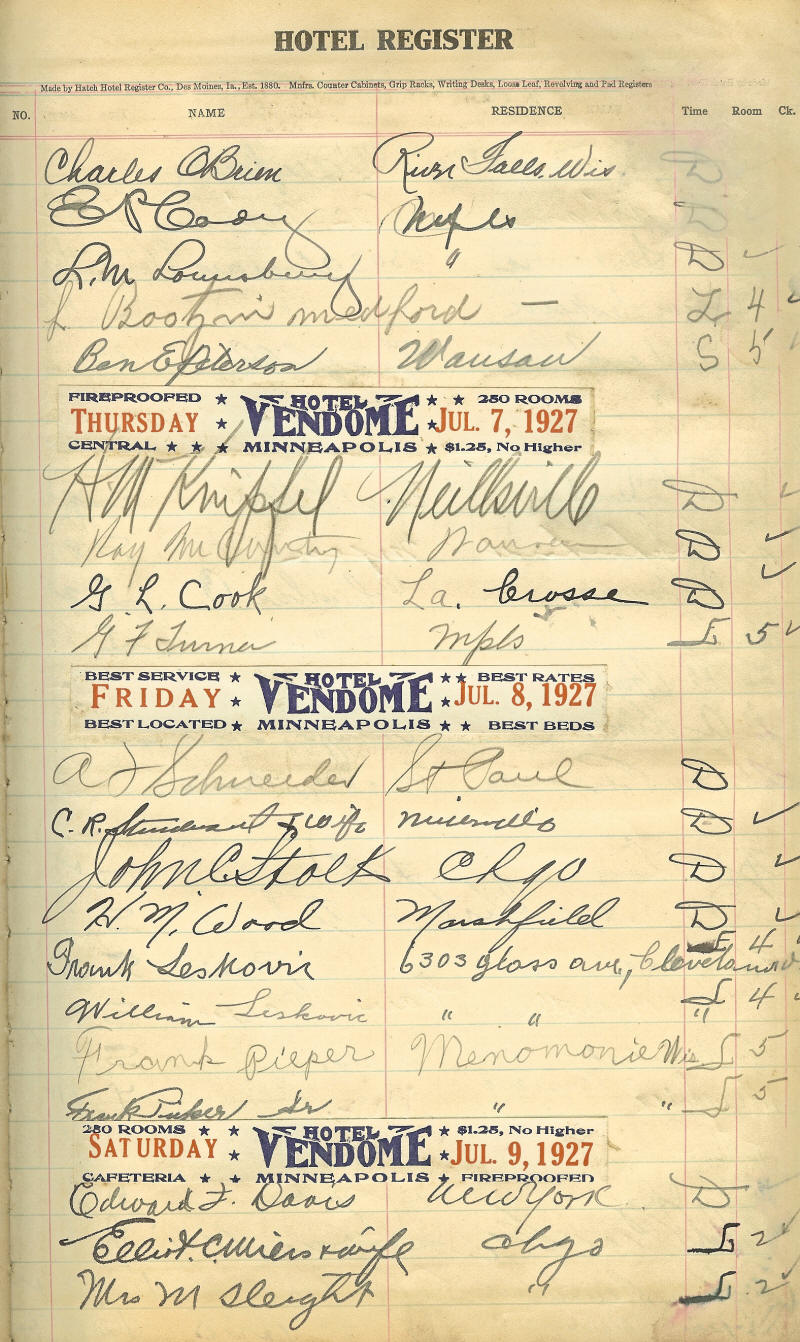 HOTEL REGISTER
Made by Hatch Hotel Register Co., Des Moines, Ia., Est. 1880. Mnfrs. Counter Cabinets, Grip Racks, Writing Desks, Loose Leaf, Revolving and Pad Registers
NO. NAME RESIDENCE Time Room Ck.
Charles O'Brien River Falls. Wis D
E Mpls D
L. M. Lounsbury " D ✓
Medford — L 4 ✓
Ben E Peterson Wausau S 5
FIREPROOFED ★ HOTEL ★ ★ 250 ROOMS
THURSDAY ★ VENDOME ★ JUL. 7, 1927
CENTRAL ★ ★ ★ MINNEAPOLIS ★ $1.25, No Higher
H M Knipfel Neillsville D ✓
Ray McCourty D ✓
G. L. Cook La. Crosse D ✓
G F Turner Mpls L 5 ✓
BEST SERVICE ★ HOTEL ★ ★ BEST RATES
FRIDAY ★ VENDOME ★ JUL. 8, 1927
BEST LOCATED ★ MINNEAPOLIS ★ ★ BEST BEDS
A J Schneider St Paul D
C. R. Sturdevant & Wife D ✓
John C Stolk Chgo D ✓
H. M. Wood Marshfield D ✓
Frank Leskovic 6303 glass ave., Cleveland L 4
William Leskovic " " " L 4 ✓
Frank Pieper Menomonie Wis L 5
Frank " " L 5
250 ROOMS ★ ★ HOTEL ★ $1.25, No Higher
SATURDAY ★ VENDOME ★ JUL. 9, 1927
CAFETERIA ★ ★ MINNEAPOLIS ★ FIREPROOFED
Edward F. Davis New York D
Elliot. C. Miers & wife chgo L 2
Mrs M Sleight " L 2